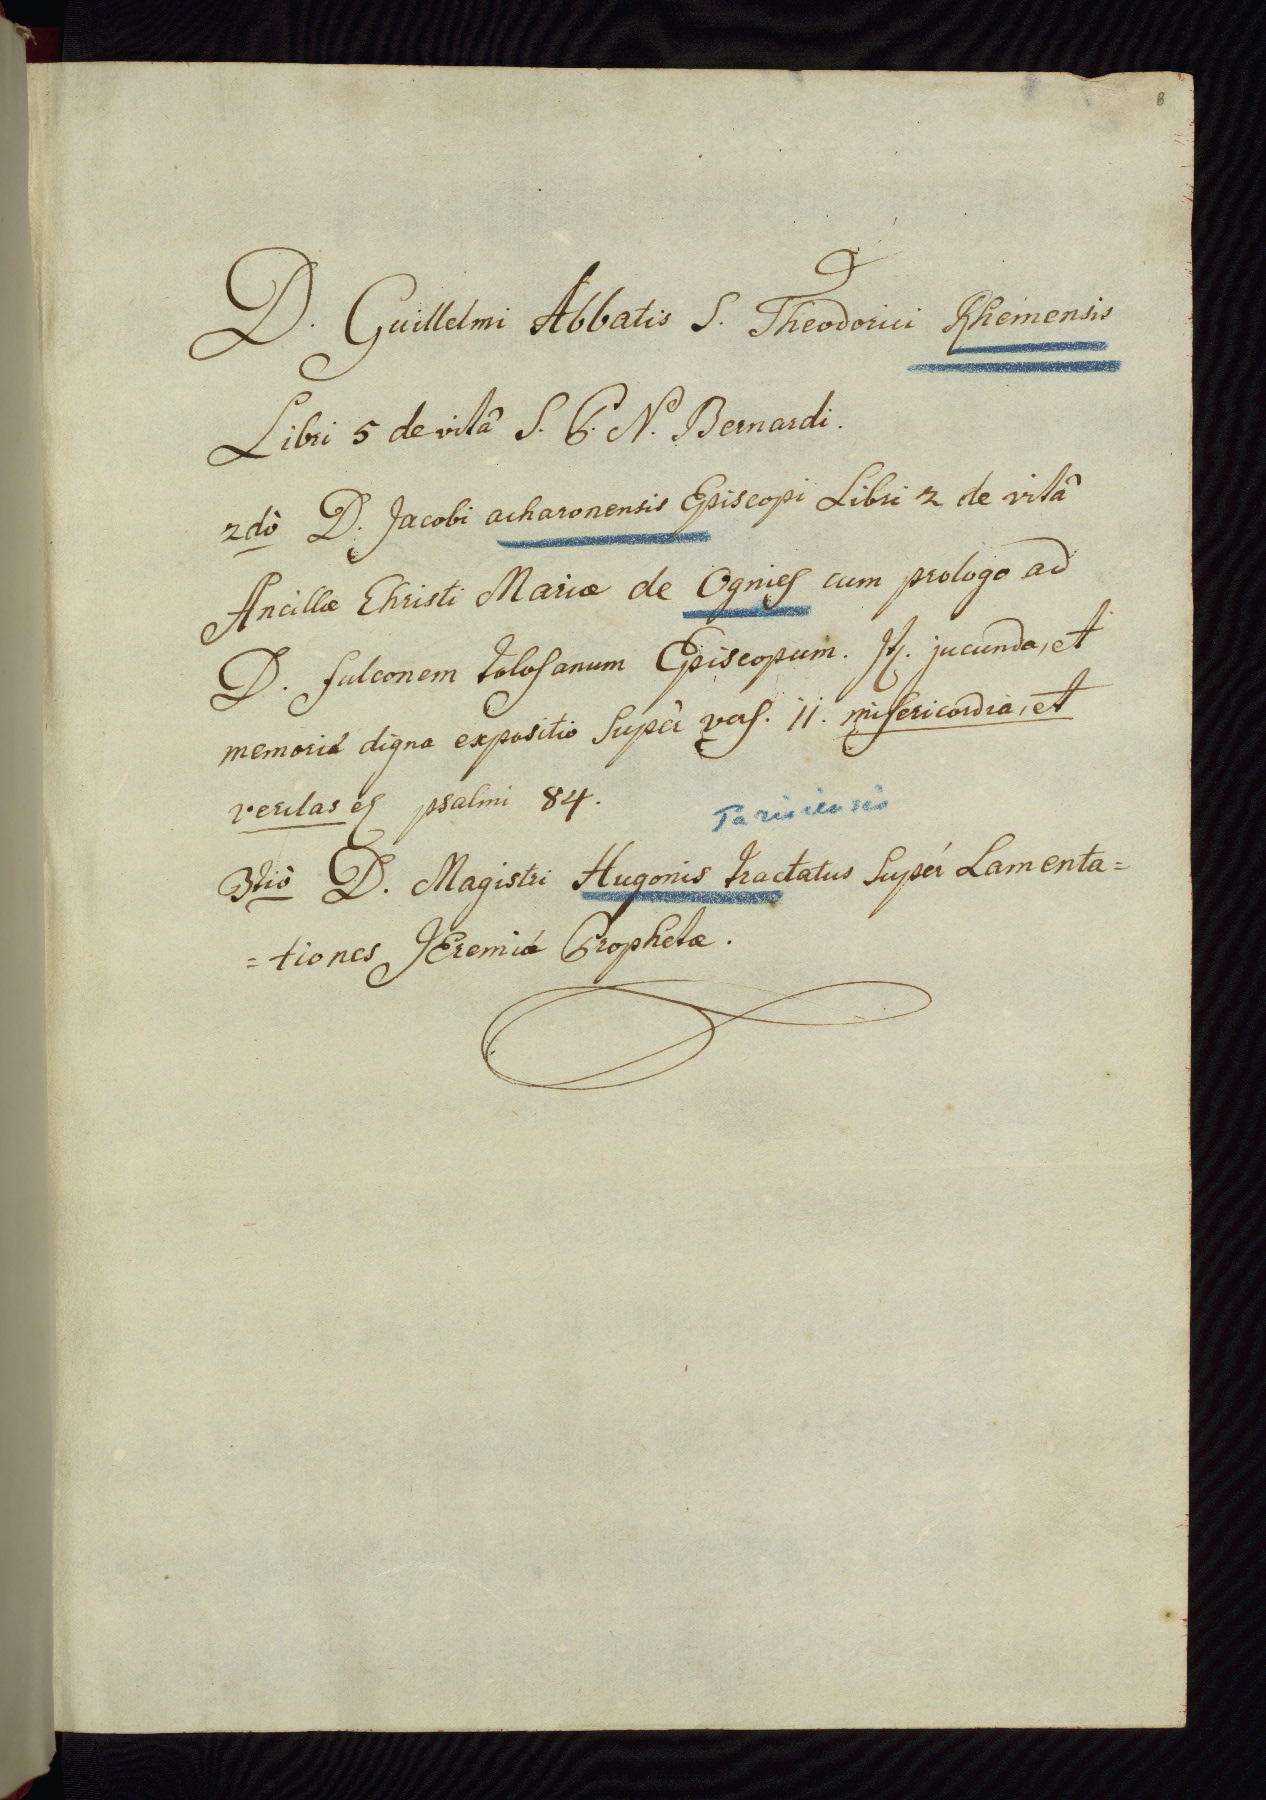 8
D. Guillelmi Abbatis S. Theodorici Rhemensis
Libri 5 de vitâ S. P. N. Bernardi.
2dô D. Jacobi acharonensis Episcopi Libri 2 de vitâ
Ancillæ Christi Mariæ de Ognies cum prologo ad
D. fulconem tolosanum Episcopum. It. jucunda, et
memoriâ digna expositio supèr vers. 11. misericordia, et
veritas etc psalmi 84.
Parisiensis
3tiò D. Magistri Hugonis tractatus supèr Lamenta=
=tiones Jeremiæ Prophetæ.